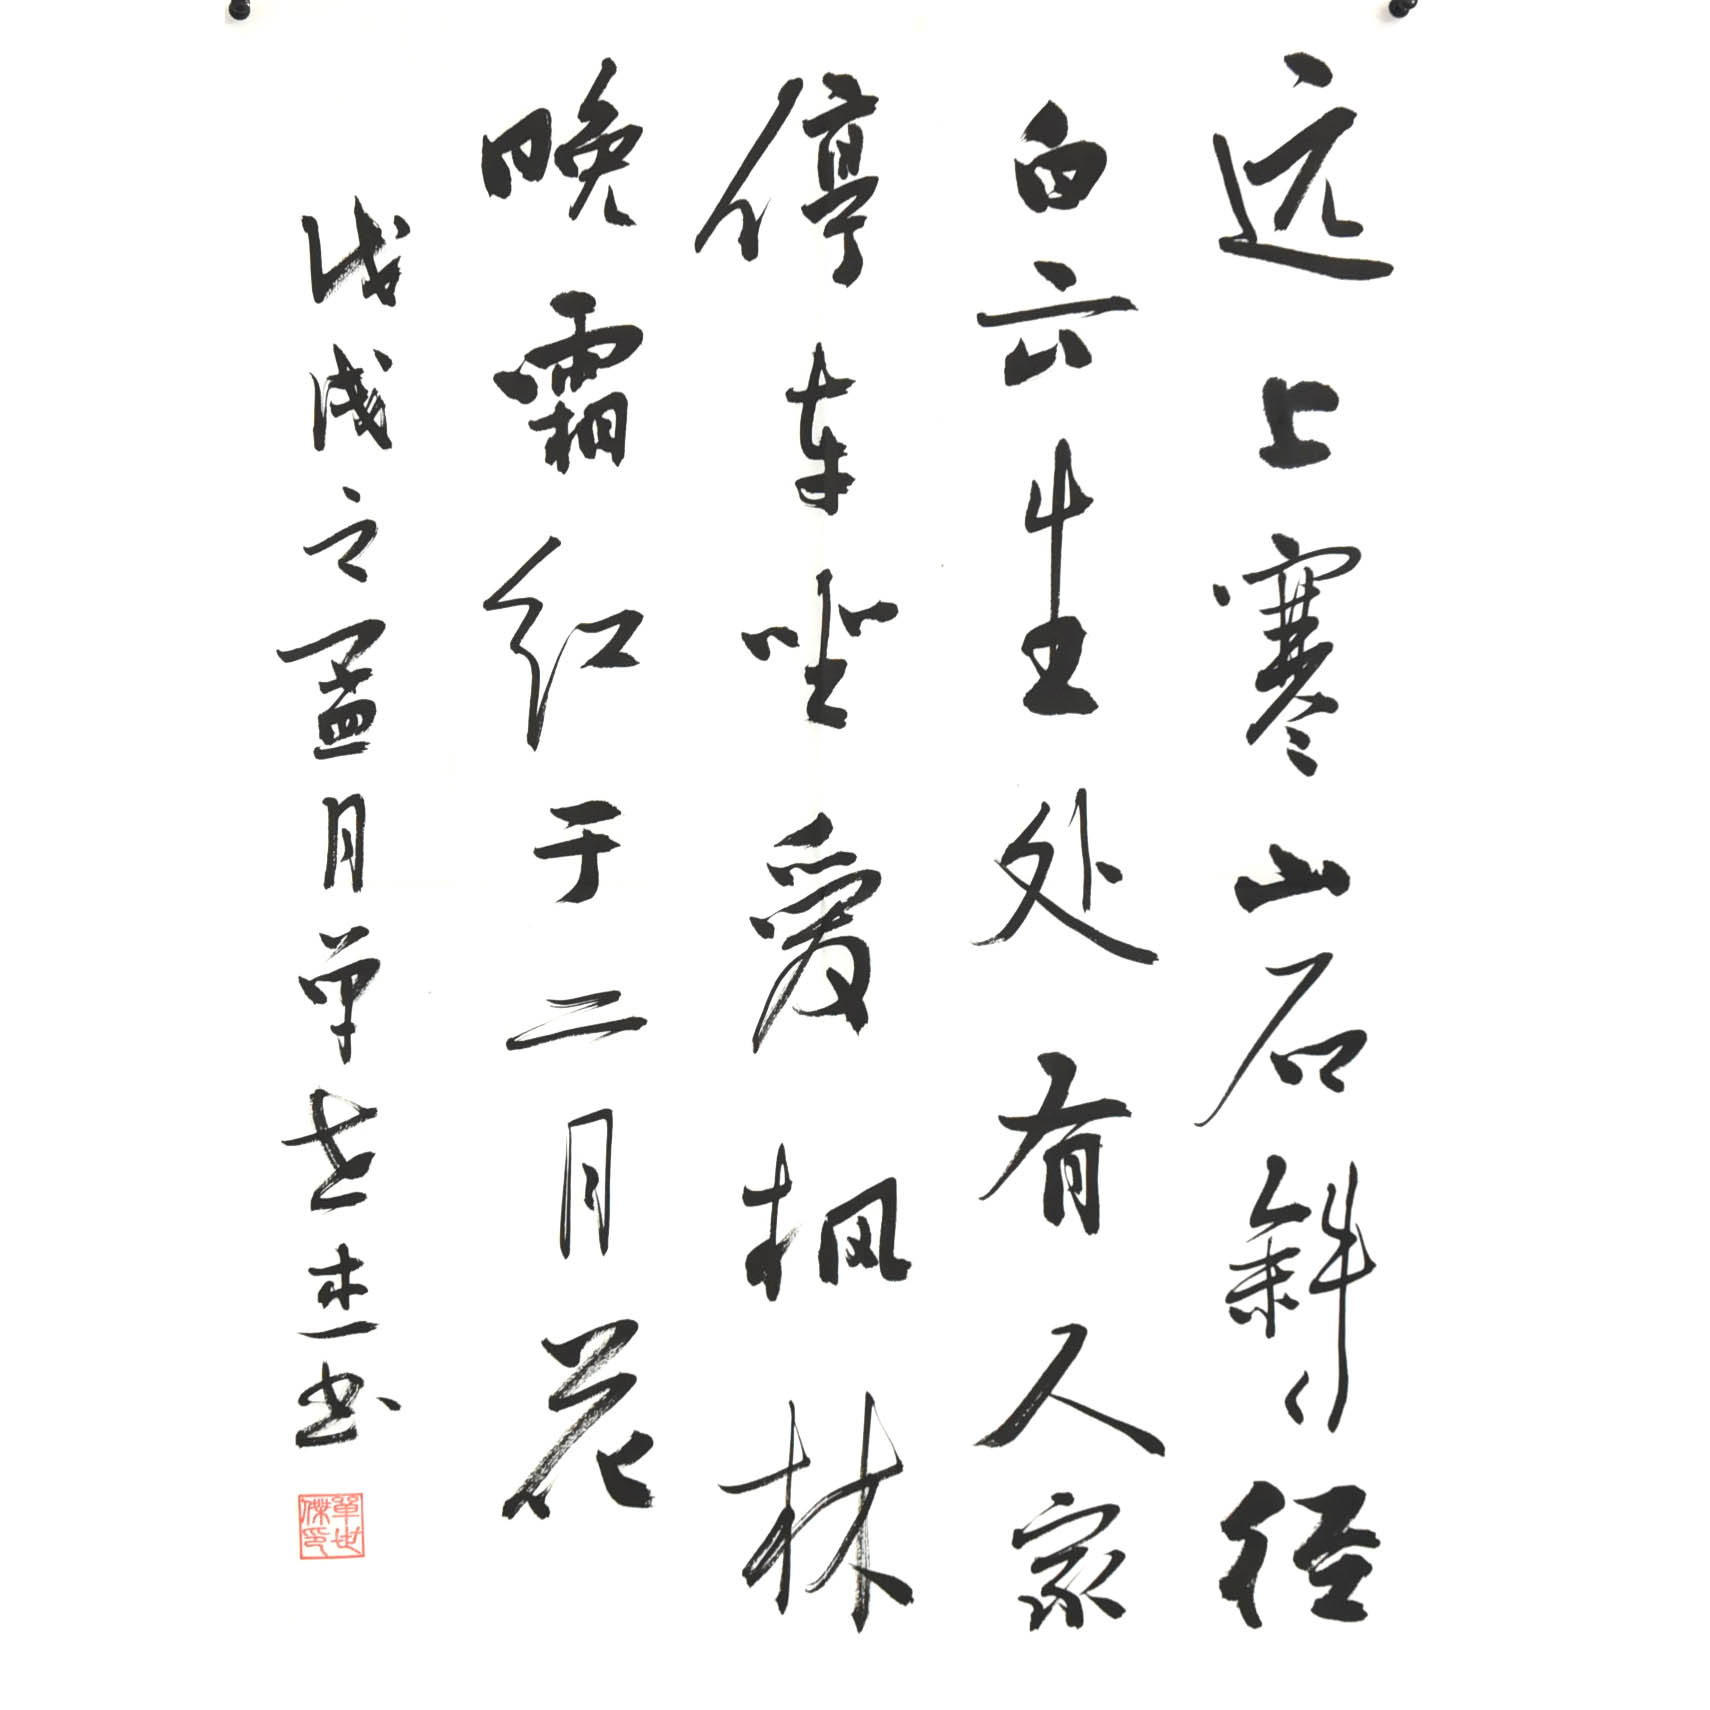 远上寒山石斜径
白云生处有人家
停车坐爱枫林
晚霜红于二月花
戊戌之孟月单世杰书
單世傑印